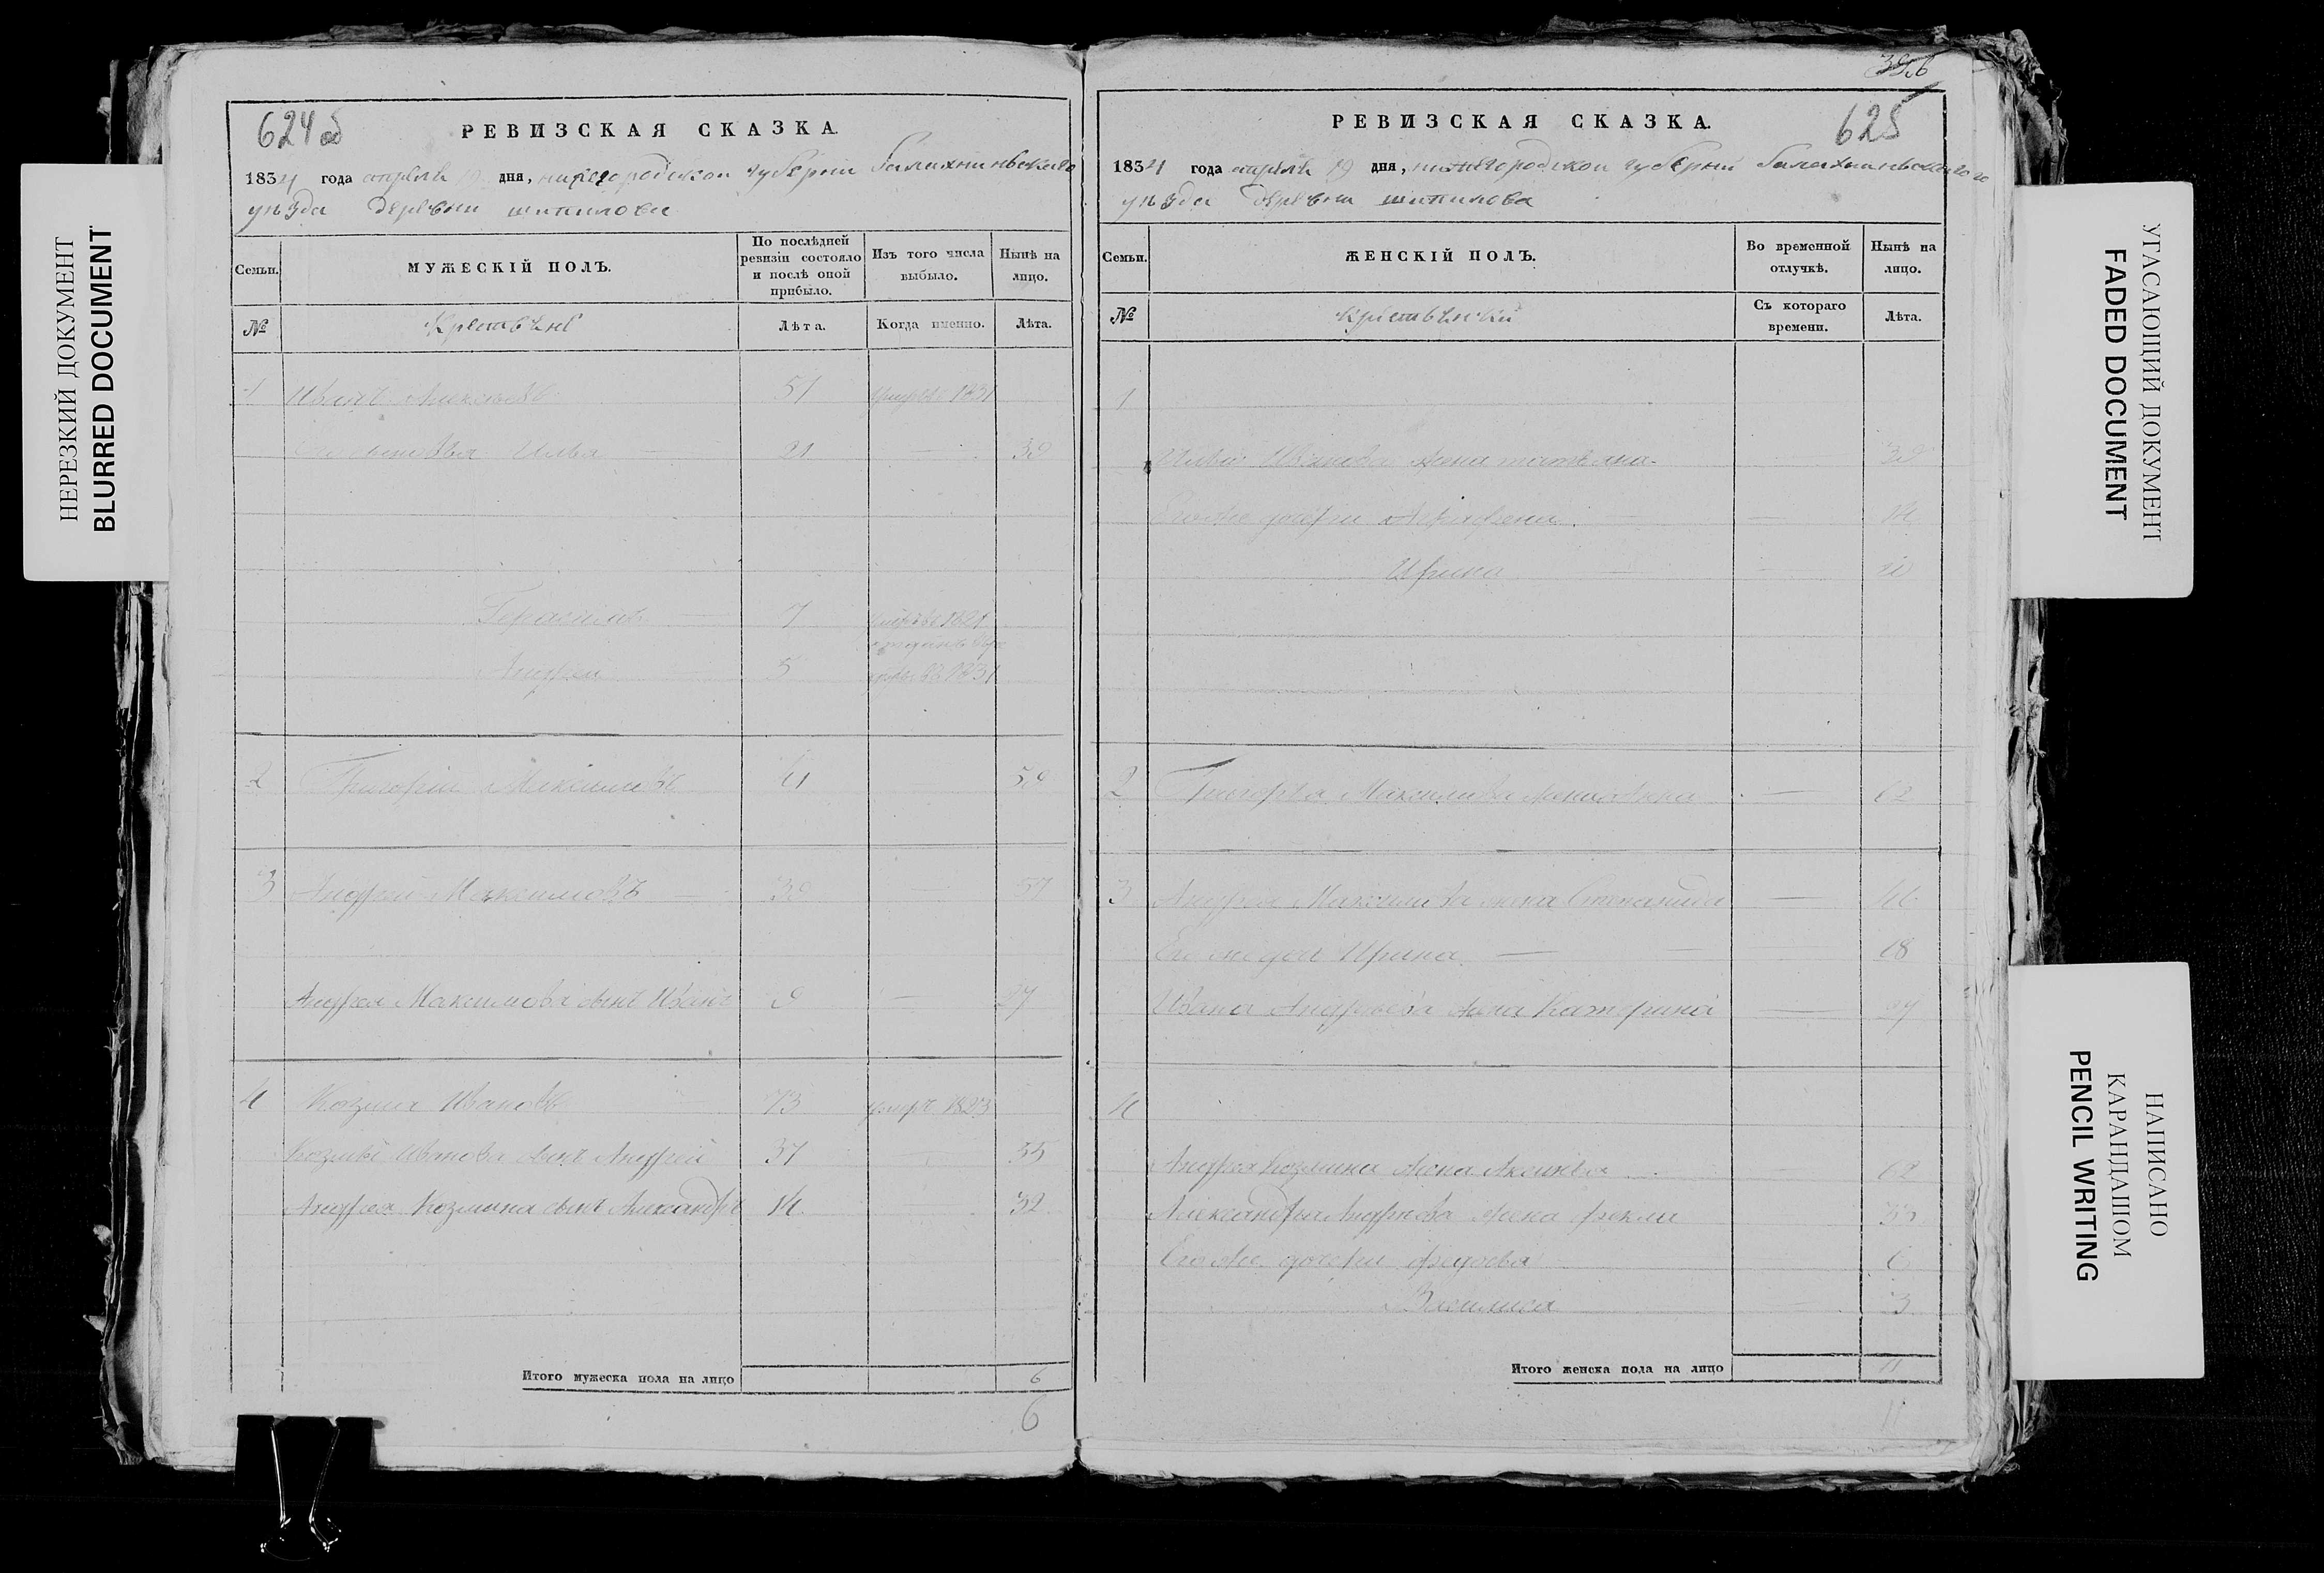 НЕРЕЗКИЙ ДОКУМЕНТ
BLURRED DOCUMENT
624 об
РЕВИЗСКАЯ СКАЗКА.
1834 года апреля 19 дня, нижегородской губернии балахнинскаго
уѣзда деревни шипилова
Семьи.
МУЖЕСКІЙ ПОЛЪ.
По послѣдней ревизіи состояло и послѣ оной прибыло.
Изъ того числа выбыло.
Нынѣ на лицо.
№
Крестьяне
Лѣта.
Когда именно.
Лѣта.
1 Иванъ Алексѣевъ 51 умре 1831
Илья 21 39
Герасимъ 7 1821
Андрей 5 1831
2 Григорій Максимовъ 41 59
3 Андрей Максимовъ 39 57
Андрея Максимова сынъ Иванъ 9 27
4 Козма Ивановъ 73 умре 1823
Козмы Иванова сынъ Андрей 37 55
Андрея Козмина сынъ Александръ 14 32
Итого мужеска пола на лицо 6
6
396
625
РЕВИЗСКАЯ СКАЗКА.
1834 года апреля 19 дня, нижегородской губернии балахнинскаго
уѣзда деревни шипилова
Семьи.
ЖЕНСКІЙ ПОЛЪ.
Во временной отлучкѣ.
Нынѣ на лицо.
№
крестьянки
Съ котораго времени.
Лѣта.
1
Ильи Иванова жена татьяна 39
Его же дочери 14
Ирина
2 Григорья Максимова жена 62
3 Андрея Максимова жена Степанида 46
Его же дочь Ирина 18
Ивана Андреева жена Катерина 27
4
Андрея Козмина жена 62
Александра Андреева жена фекла
Его же дочери федосья 6
Василиса 3
Итого женска пола на лицо 11
11
УГАСАЮЩИЙ ДОКУМЕНТ
FADED DOCUMENT
НАПИСАНО КАРАНДАШОМ
PENCIL WRITING